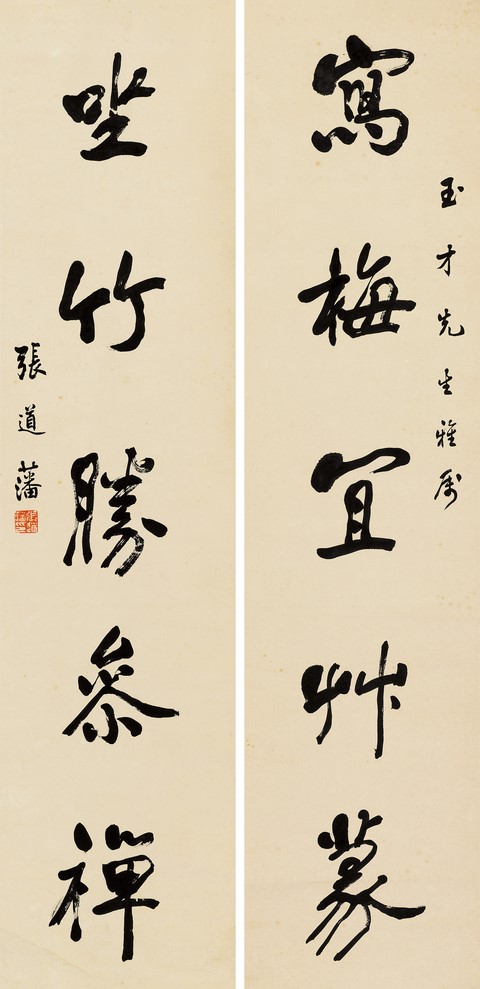 玉才先生雅属
寫梅宜艸篆
坐竹勝參禪
張道藩